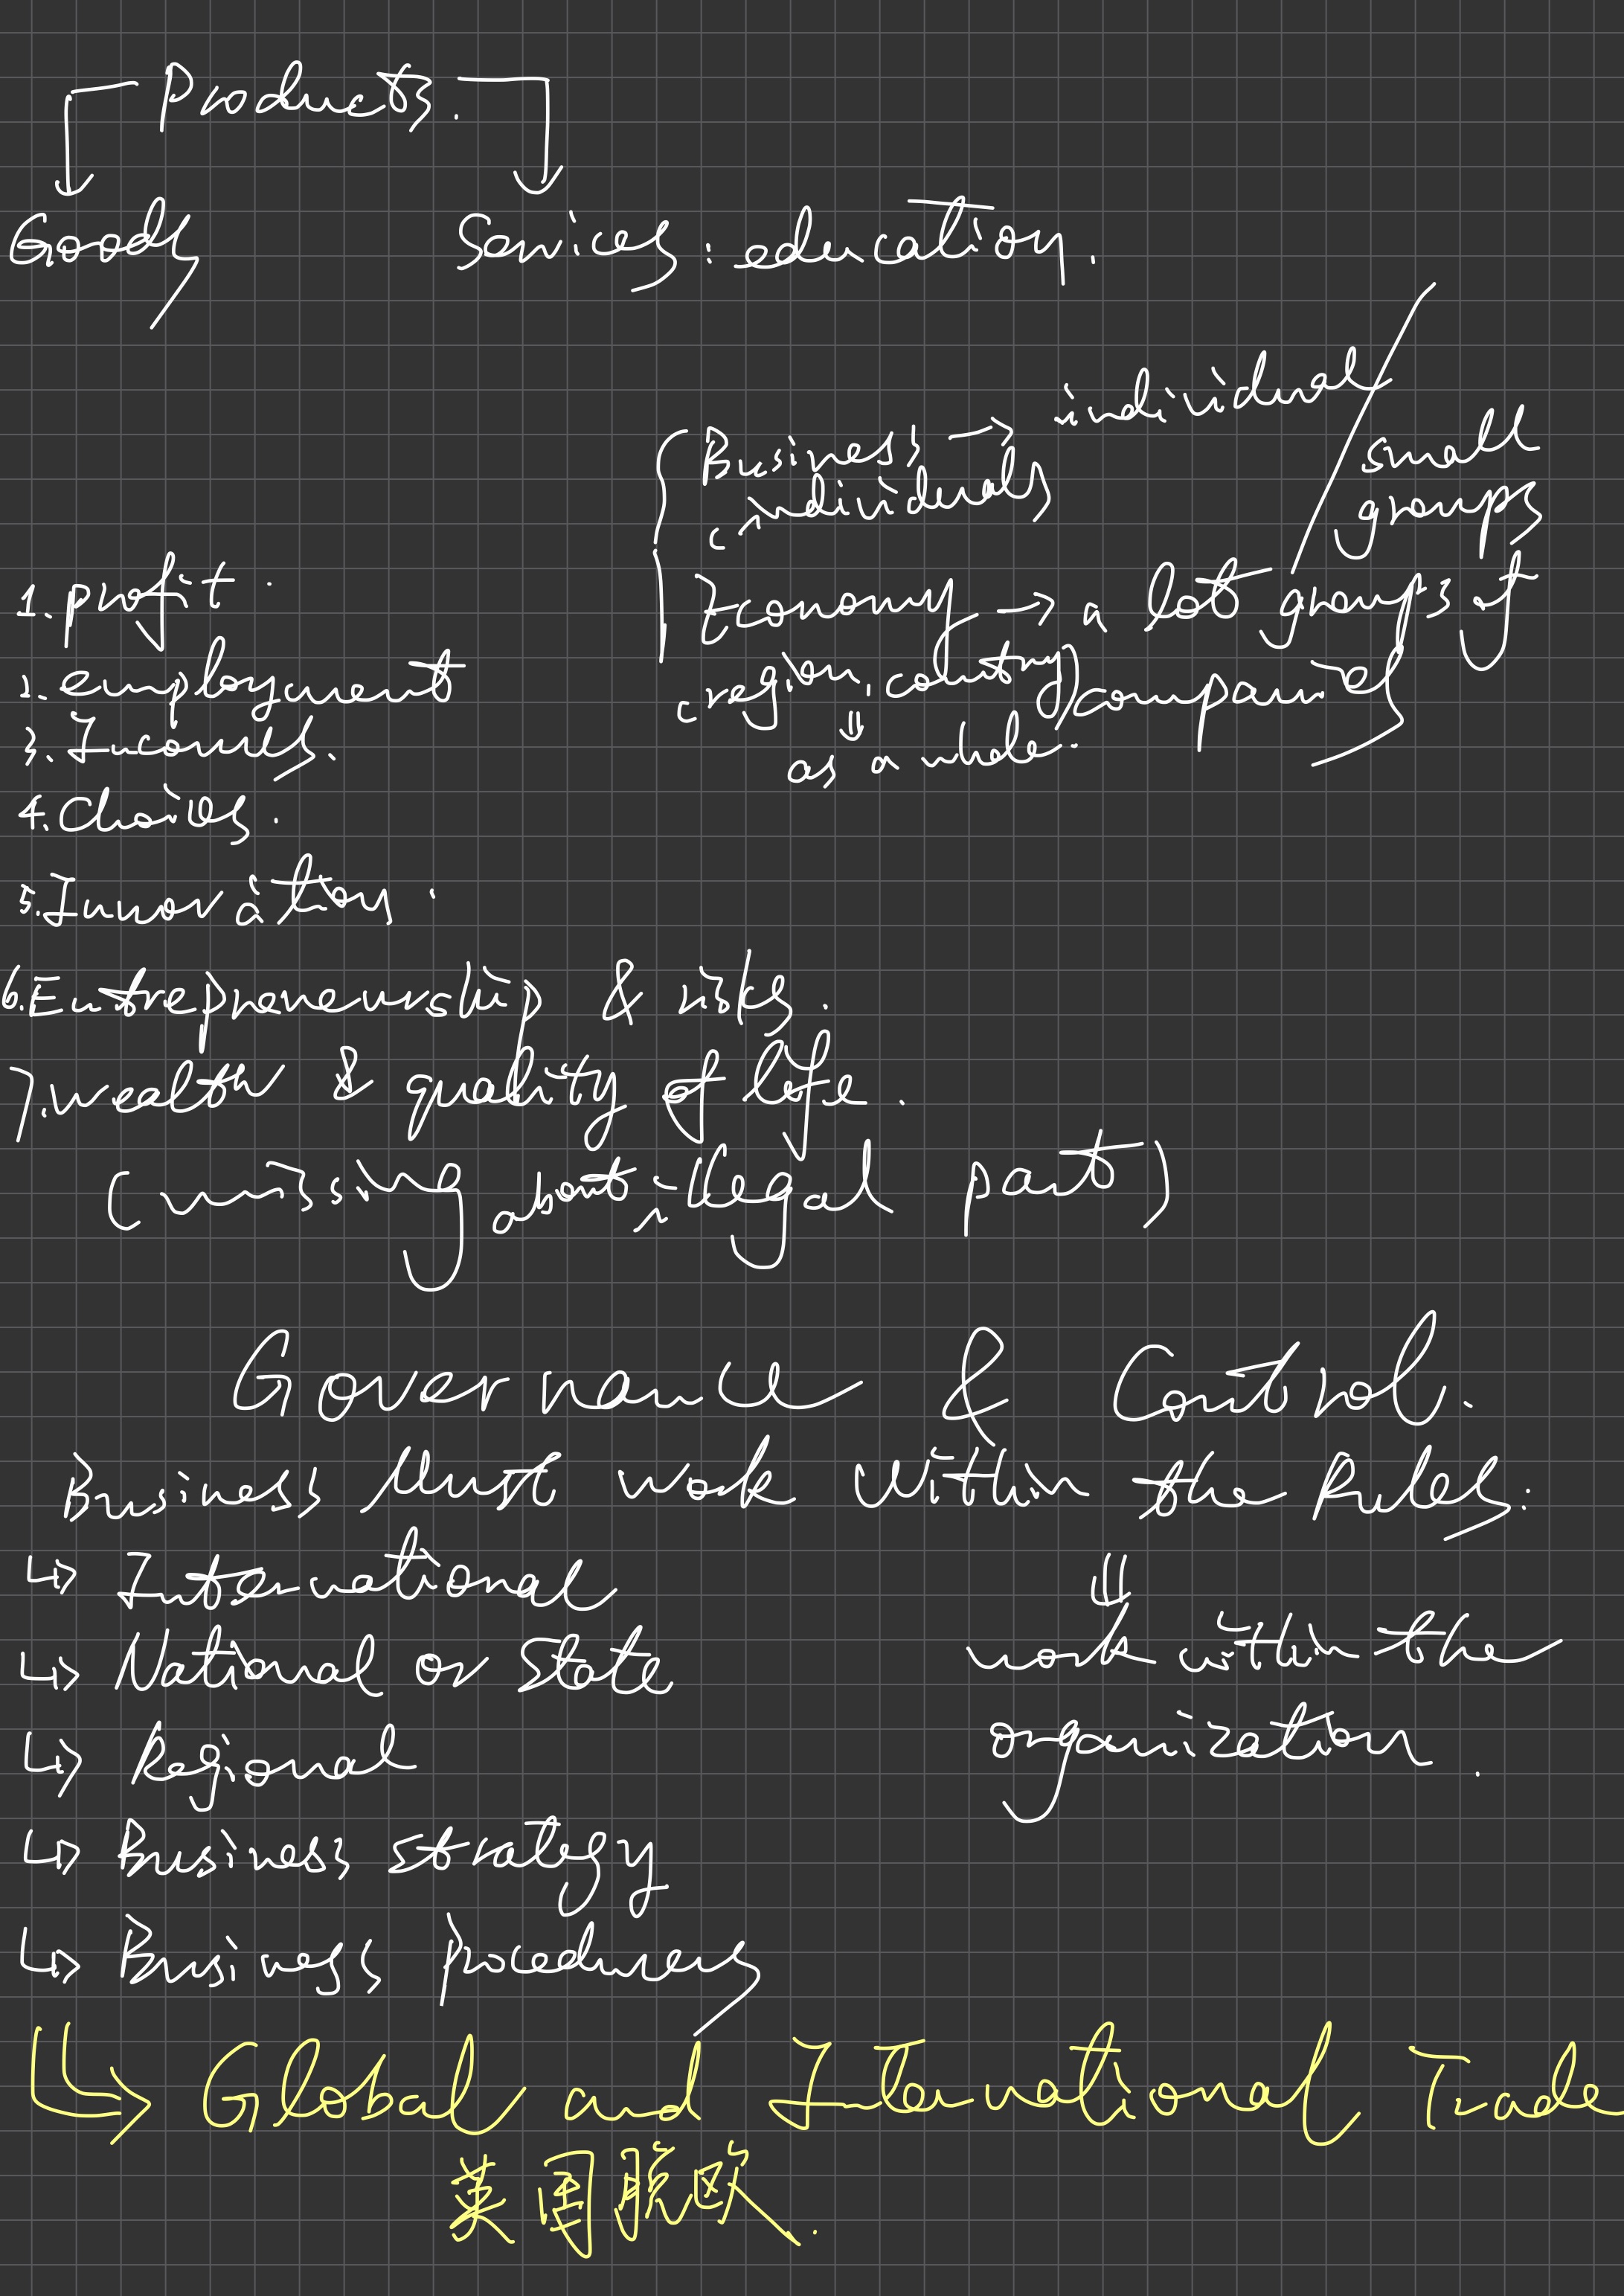 Products.
Goods
Services: education.
Business → individual
individuals
small
groups
Economy → a lot groups of
region, country
companies
as a whole.
1. profit.
2. employment
3. Incomes.
4. Choices.
5. Innovation.
6. Entrepreneurship & risks.
7. wealth & quality of life.
(missing about illegal part)
Governance & Control.
Business Must work within the Rules:
↳ International
↳ National or State
↳ Regional
↳ Business strategy
↳ Business Procedures
⇓
work within the
organization.
Global and International Trade
英国脱欧.